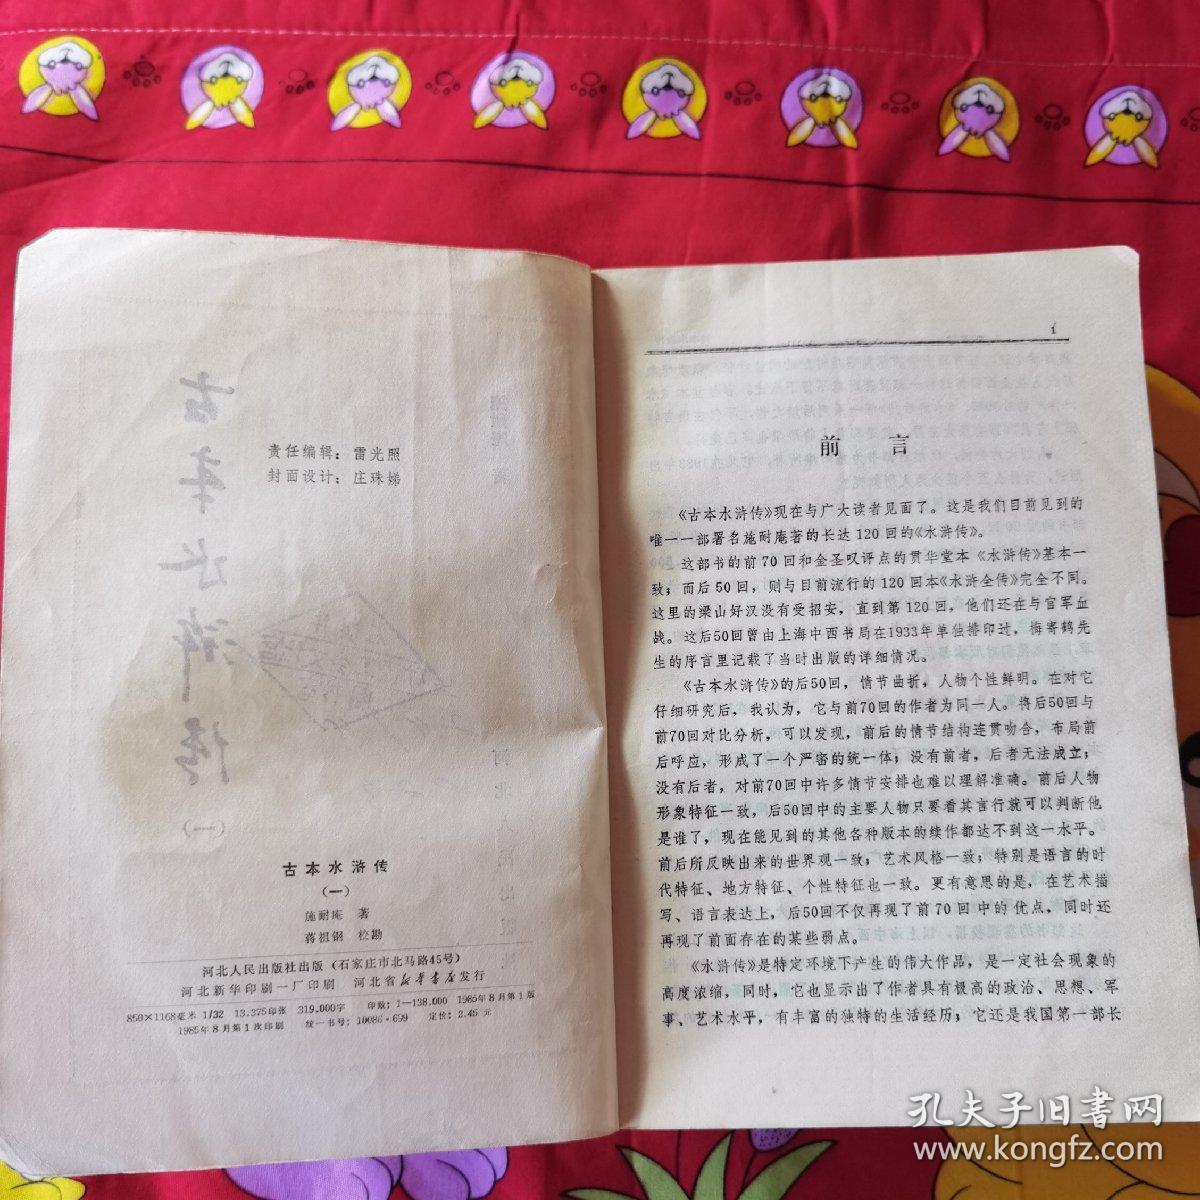 责任编辑：雷光照
封面设计：庄珠娣
古本水浒传
（一）
施耐庵 著
蒋祖钢 校勘
河北人民出版社出版（石家庄市北马路45号）
河北新华印刷一厂印刷 河北省新华书店发行
850×1168毫米 1/32 13.375印张 319,000字 印数：1—138,000 1985年8月第1版
1985年8月第1次印刷 统一书号：10086·699 定价：2.45元
1
前 言
《古本水浒传》现在与广大读者见面了。这是我们目前见到的
唯一一部署名施耐庵著的长达120回的《水浒传》。
这部书的前70回和金圣叹评点的贯华堂本《水浒传》基本一
致；而后50回，则与目前流行的120回本《水浒全传》完全不同。
这里的梁山好汉没有受招安，直到第120回，他们还在与官军血
战。这后50回曾由上海中西书局在1933年单独排印过，梅寄鹤先
生的序言里记载了当时出版的详细情况。
《古本水浒传》的后50回，情节曲折，人物个性鲜明。在对它
仔细研究后，我认为，它与前70回的作者为同一人。将后50回与
前70回对比分析，可以发现，前后的情节结构连贯吻合，布局前
后呼应，形成了一个严密的统一体；没有前者，后者无法成立；
没有后者，对前70回中许多情节安排也难以理解准确。前后人物
形象特征一致，后50回中的主要人物只要看其言行就可以判断他
是谁了，现在能见到的其他各种版本的续作都达不到这一水平。
前后所反映出来的世界观一致；艺术风格一致；特别是语言的时
代特征、地方特征、个性特征也一致。更有意思的是，在艺术描
写、语言表达上，后50回不仅再现了前70回中的优点，同时还
再现了前面存在的某些弱点。
《水浒传》是特定环境下产生的伟大作品，是一定社会现象的
高度浓缩，同时，它也显示出了作者具有极高的政治、思想、军
事、艺术水平，有丰富的独特的生活经历；它还是我国第一部长
孔夫子旧书网
www.kongfz.com